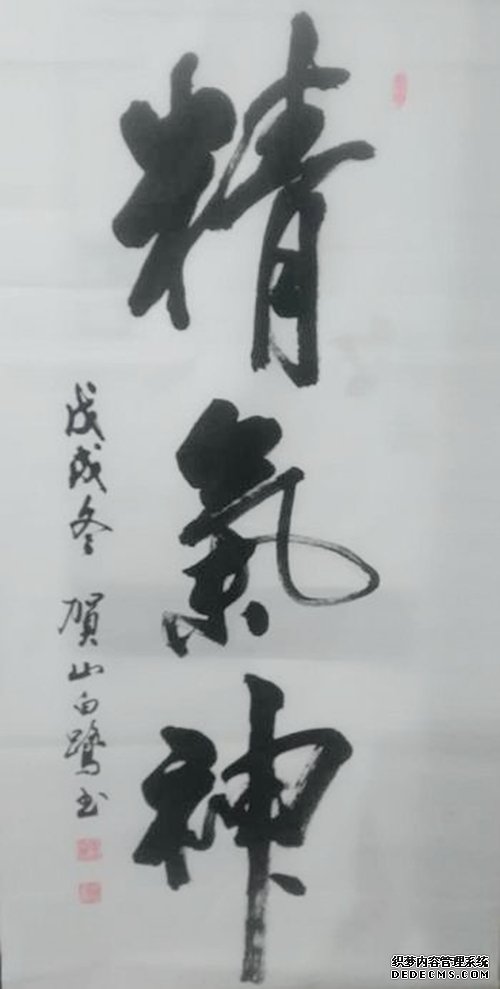 精氣神
戊戌冬 賀山白鷺书
织梦内容管理系统
DEDECMS.COM